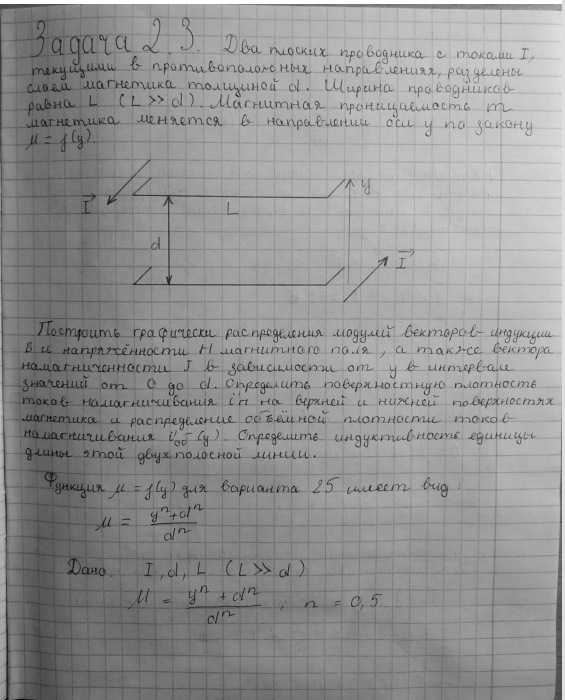 Задача 2.3. Два плоских проводника с токами I,
текущими в противоположных направлениях, разделены
слоем магнетика толщиной d. Ширина проводников
равна L (L >> d). Магнитная проницаемость m
магнетика меняется в направлении оси y по закону
μ = f(y).
y
I
L
d
I
Построить графически распределения модулей векторов индукции
B и напряжённости H магнитного поля, а также вектора
намагниченности J в зависимости от y в интервале
значений от 0 до d. Определить поверхностную плотность
токов намагничивания i'п на верхней и нижней поверхностях
магнетика и распределение объёмной плотности токов
намагничивания i'об (y). Определить индуктивность единицы
длины этой двухполосной линии.
Функция μ = f(y) для варианта 25 имеет вид:
μ = (yⁿ + dⁿ) / dⁿ
Дано. I, d, L (L >> d)
μ = (yⁿ + dⁿ) / dⁿ ; n = 0,5